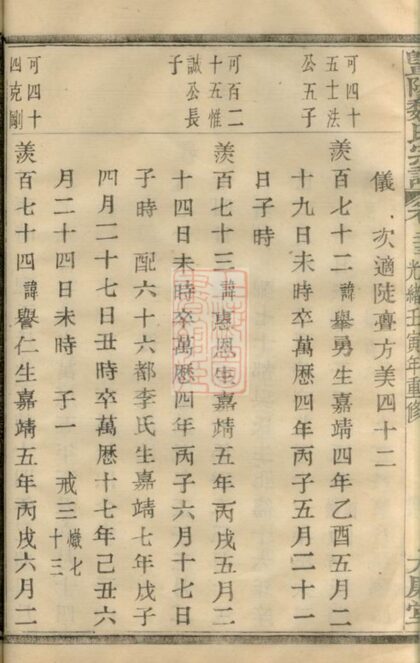 光緒壬寅年重修
儀 次適陡亹方美四十二
可四十五士法公五子
羨百七十二諱舉勇生嘉靖四年乙酉五月二
十九日未時卒萬曆四年丙子五月二十一
日子時
可百二十五惟誠公長子
羨百七十三諱惠恩生嘉靖五年丙戌五月二
十四日未時卒萬曆四年丙子六月十七日
子時 配六十六都李氏生嘉靖七年戊子
四月二十七日丑時卒萬曆十七年己丑六
月二十四日未時 子一 戒三 懺七十三
可四十四克剛
羨百七十四諱譽仁生嘉靖五年丙戌六月二